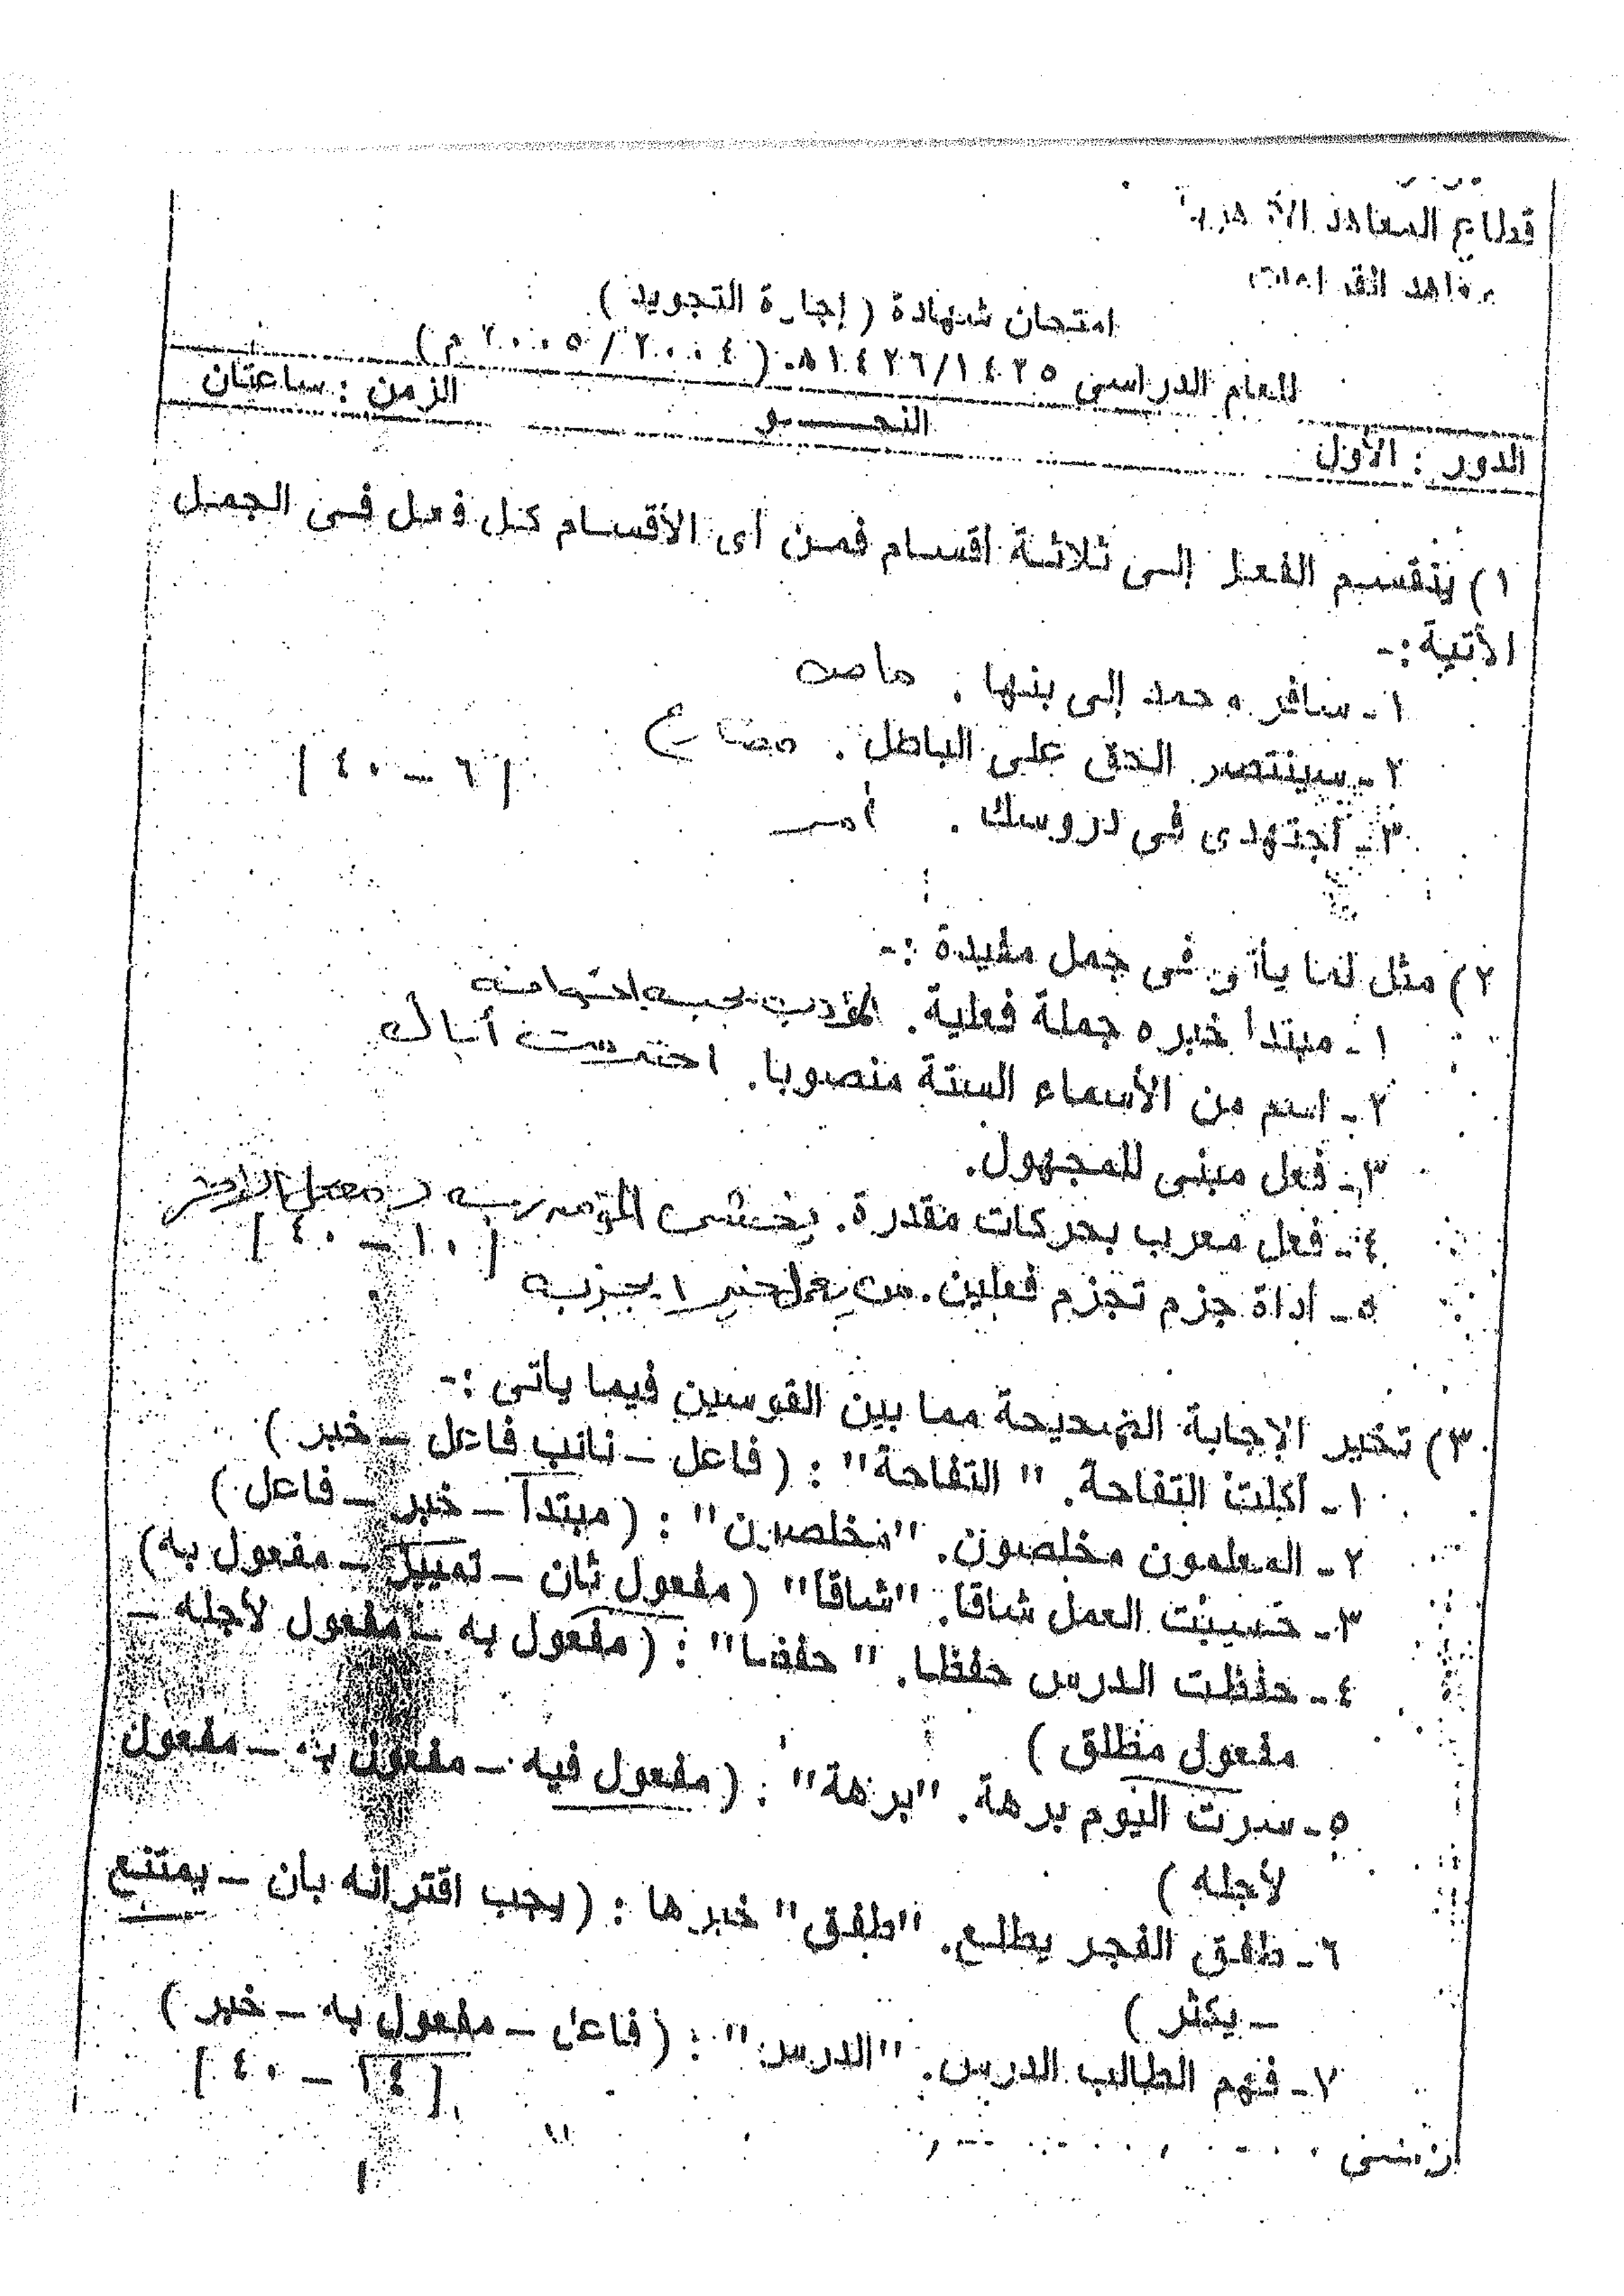 قطاع المعاهد الأزهرية
معاهد القراءات
امتحان شهادة ( إجازة التجويد )
للعام الدراسى ١٤٢٥/١٤٢٦هـ (٢٠٠٤/٢٠٠٥م)
الدور : الأول النحـــو الزمن : ساعتان
١) ينقسم الفعل إلى ثلاثة أقسام فمن أى الأقسام كل فعل فى الجمل
الآتية :-
١- سافر محمد إلى بنها . ماض
٢- سينتصر الحق على الباطل . مضارع
٣- اجتهدى فى دروسك . أمر
[ ٦ – ٤٠ ]
٢) مثل لما يأتى فى جمل مفيدة :-
١- مبتدأ خبره جملة فعلية. المؤدب يحبه إخوانه
٢- اسم من الأسماء الستة منصوبا. احترمت أباك
٣- فعل مبنى للمجهول.
٤- فعل معرب بحركات مقدرة. يخشى المؤمن ربه
٥- أداة جزم تجزم فعلين. من يعمل خيرا يجز به
[ ١٠ – ٤٠ ]
٣) تخير الإجابة الصحيحة مما بين القوسين فيما يأتى :-
١- أكلت التفاحة. " التفاحة" : ( فاعل – نائب فاعل – خبر )
٢- المعلمون مخلصون. "مخلصون" : ( مبتدأ – خبر – فاعل )
٣- حسبت العمل شاقا. "شاقا" ( مفعول ثان – تمييز – مفعول به)
٤- حفظت الدرس حفظا. " حفظا" : ( مفعول به – مفعول لأجله –
مفعول مطلق )
٥- سرت اليوم برهة. "برهة" : ( مفعول فيه – مفعول به – مفعول
لأجله )
٦- طفق الفجر يطلع. "طفق" خبرها : ( يجب اقترانه بأن – يمتنع
– يكثر )
٧- فهم الطالب الدرس. "الدرس" : ( فاعل – مفعول به – خبر )
[ ١٤ – ٤٠ ]